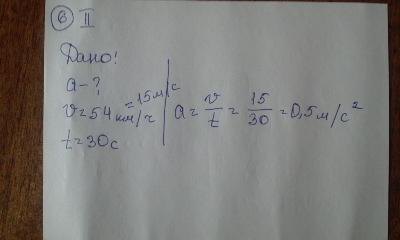 6 II
Дано!
a-?
v=54 км/ч =15м/с
t=30с
a= v/t = 15/30 =0,5м/с²